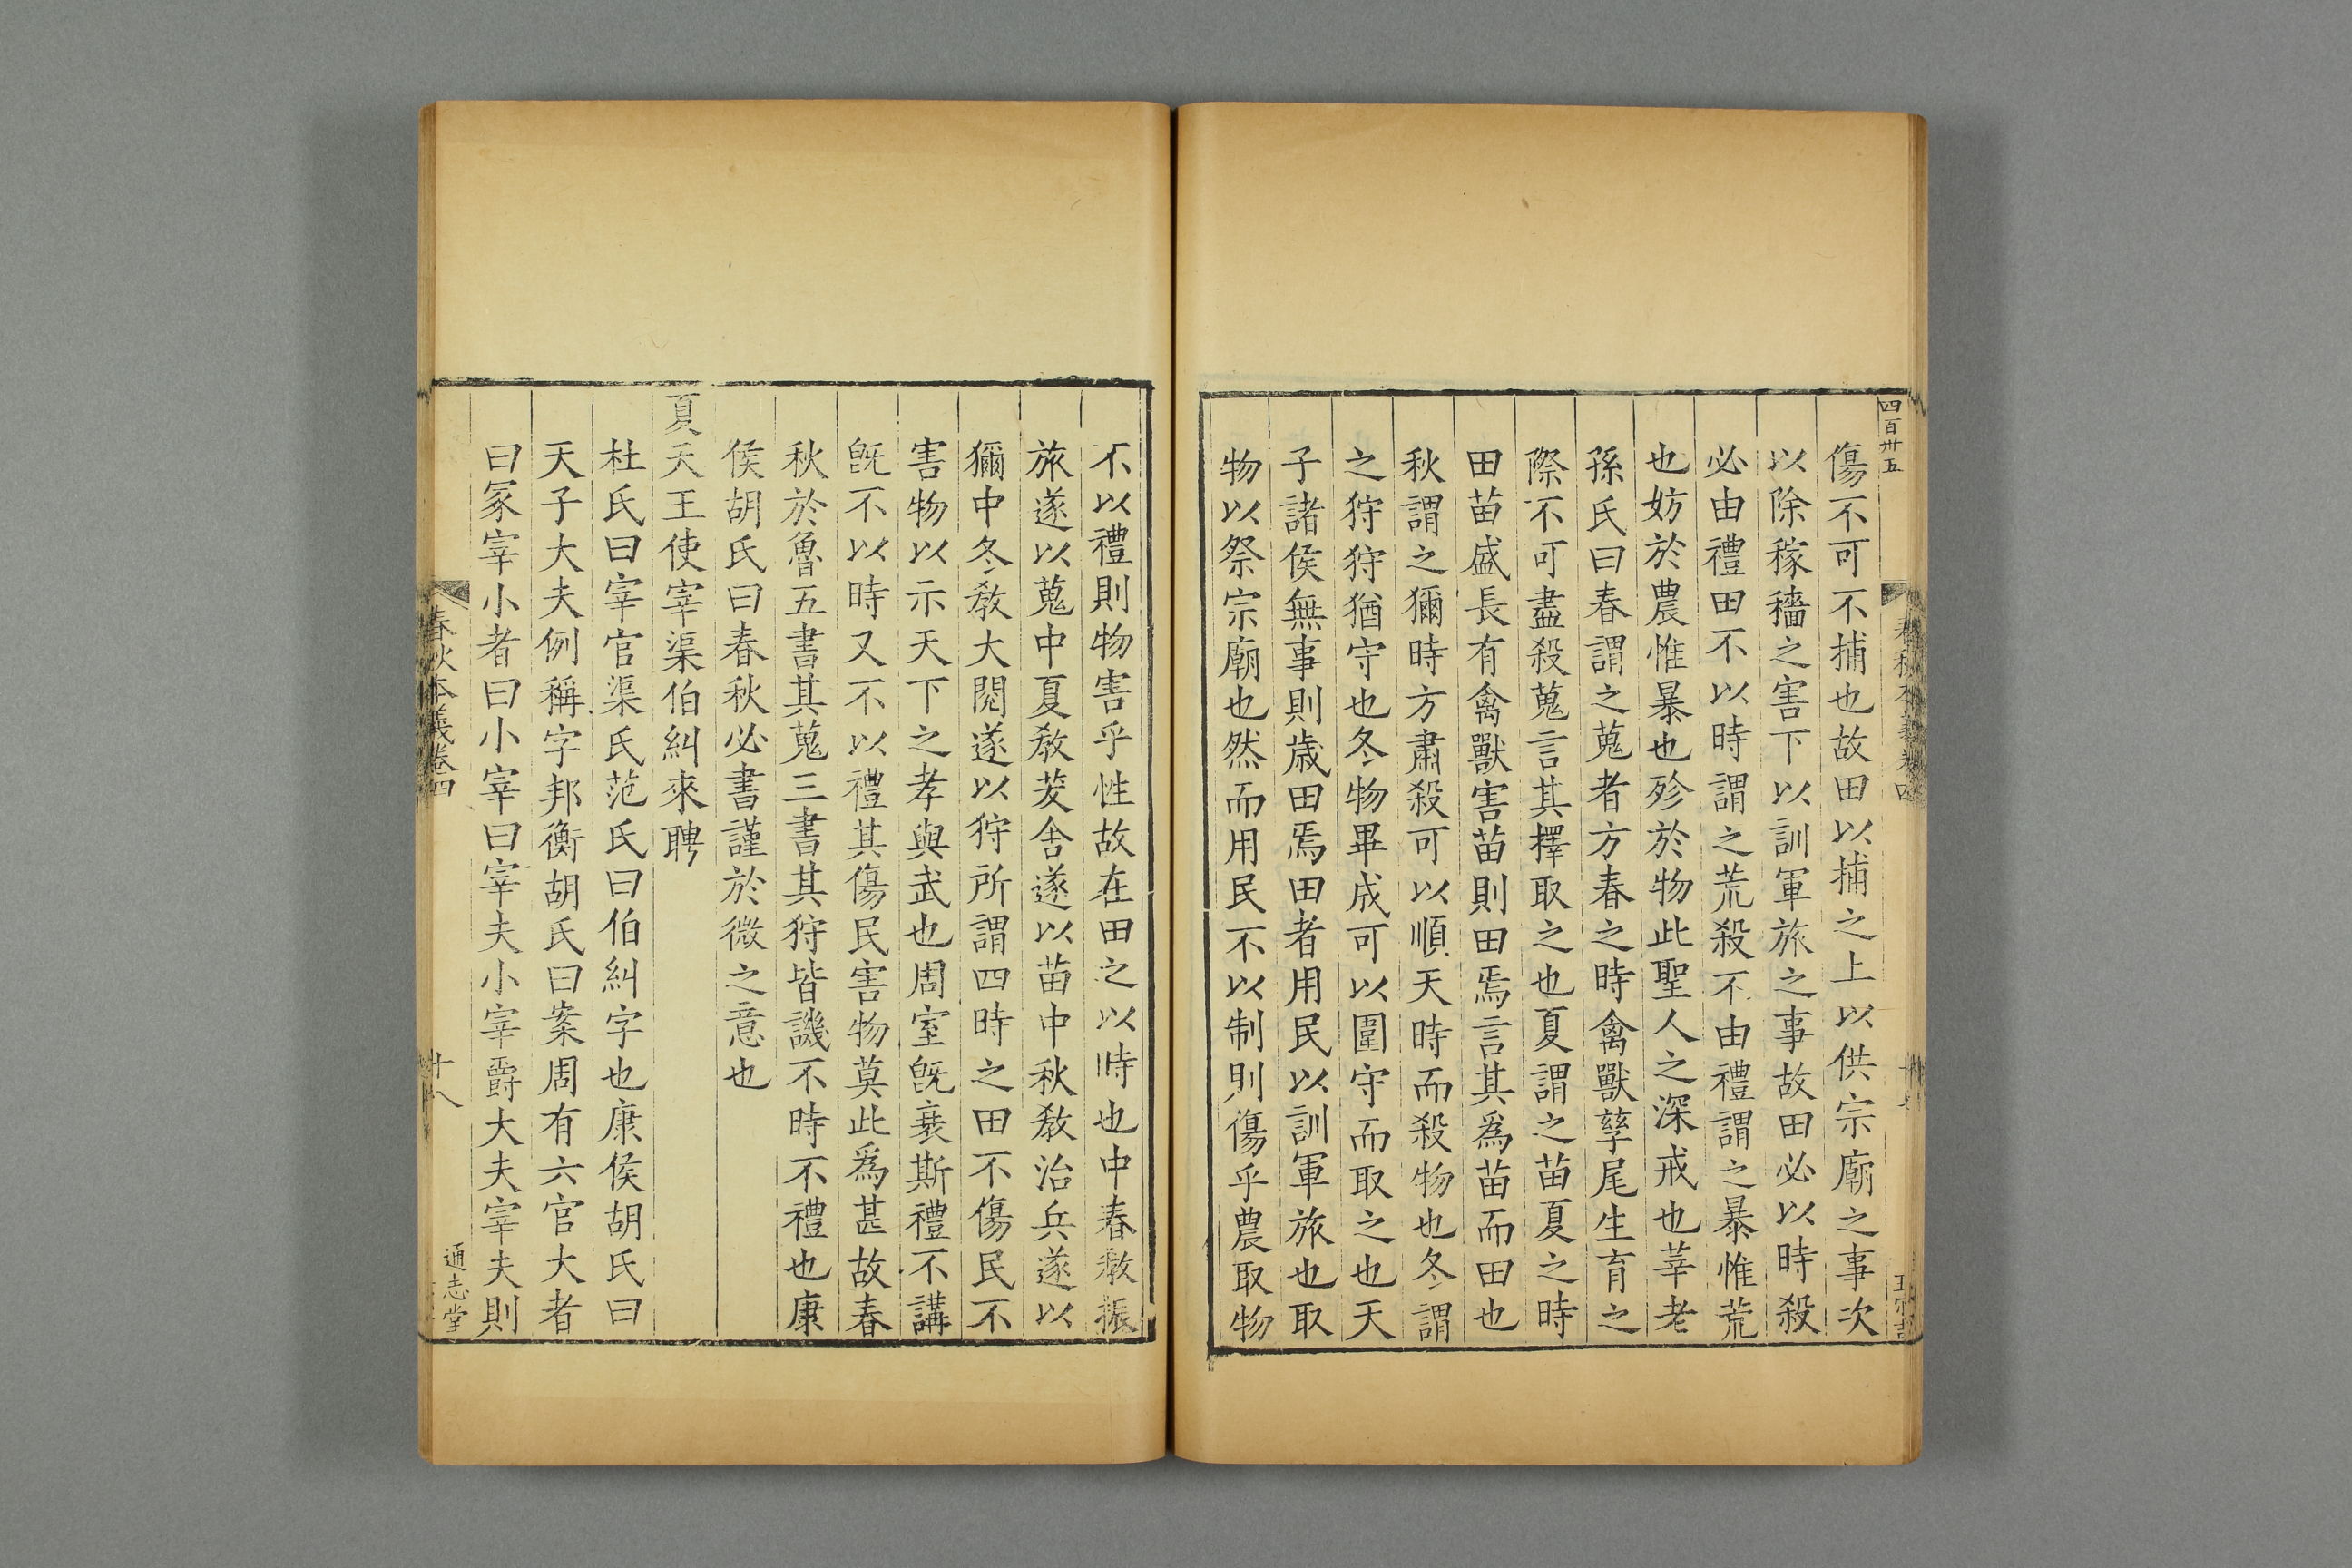 四百卅五
傷不可不捕也故田以捕之上以供宗廟之事次
以除稼穡之害下以訓軍旅之事故田必以時殺
必由禮田不以時謂之荒殺不由禮謂之暴惟荒
也妨於農惟暴也殄於物此聖人之深戒也莘老
孫氏曰春謂之蒐者方春之時禽獸孳尾生育之
際不可盡殺蒐言其擇取之也夏謂之苗夏之時
田苗盛長有禽獸害苗則田焉言其為苗而田也
秋謂之獮時方肅殺可以順天時而殺物也冬謂
之狩狩猶守也冬物畢成可以圍守而取之也天
子諸侯無事則歲田焉田者用民以訓軍旅也取
物以祭宗廟也然而用民不以制則傷乎農取物
不以禮則物害乎性故在田之以時也中春教振
旅遂以蒐中夏教茇舍遂以苗中秋教治兵遂以
獮中冬教大閱遂以狩所謂四時之田不傷民不
害物以示天下之孝與武也周室旣衰斯禮不講
旣不以時又不以禮其傷民害物莫此為甚故春
秋於魯五書其蒐三書其狩皆譏不時不禮也康
侯胡氏曰春秋必書謹於微之意也
夏天王使宰渠伯糾來聘
杜氏曰宰官渠氏范氏曰伯糾字也康侯胡氏曰
天子大夫例稱字邦衡胡氏曰案周有六官大者
曰冢宰小者曰小宰曰宰夫小宰爵大夫宰夫則
春秋本義卷四
十八
通志堂